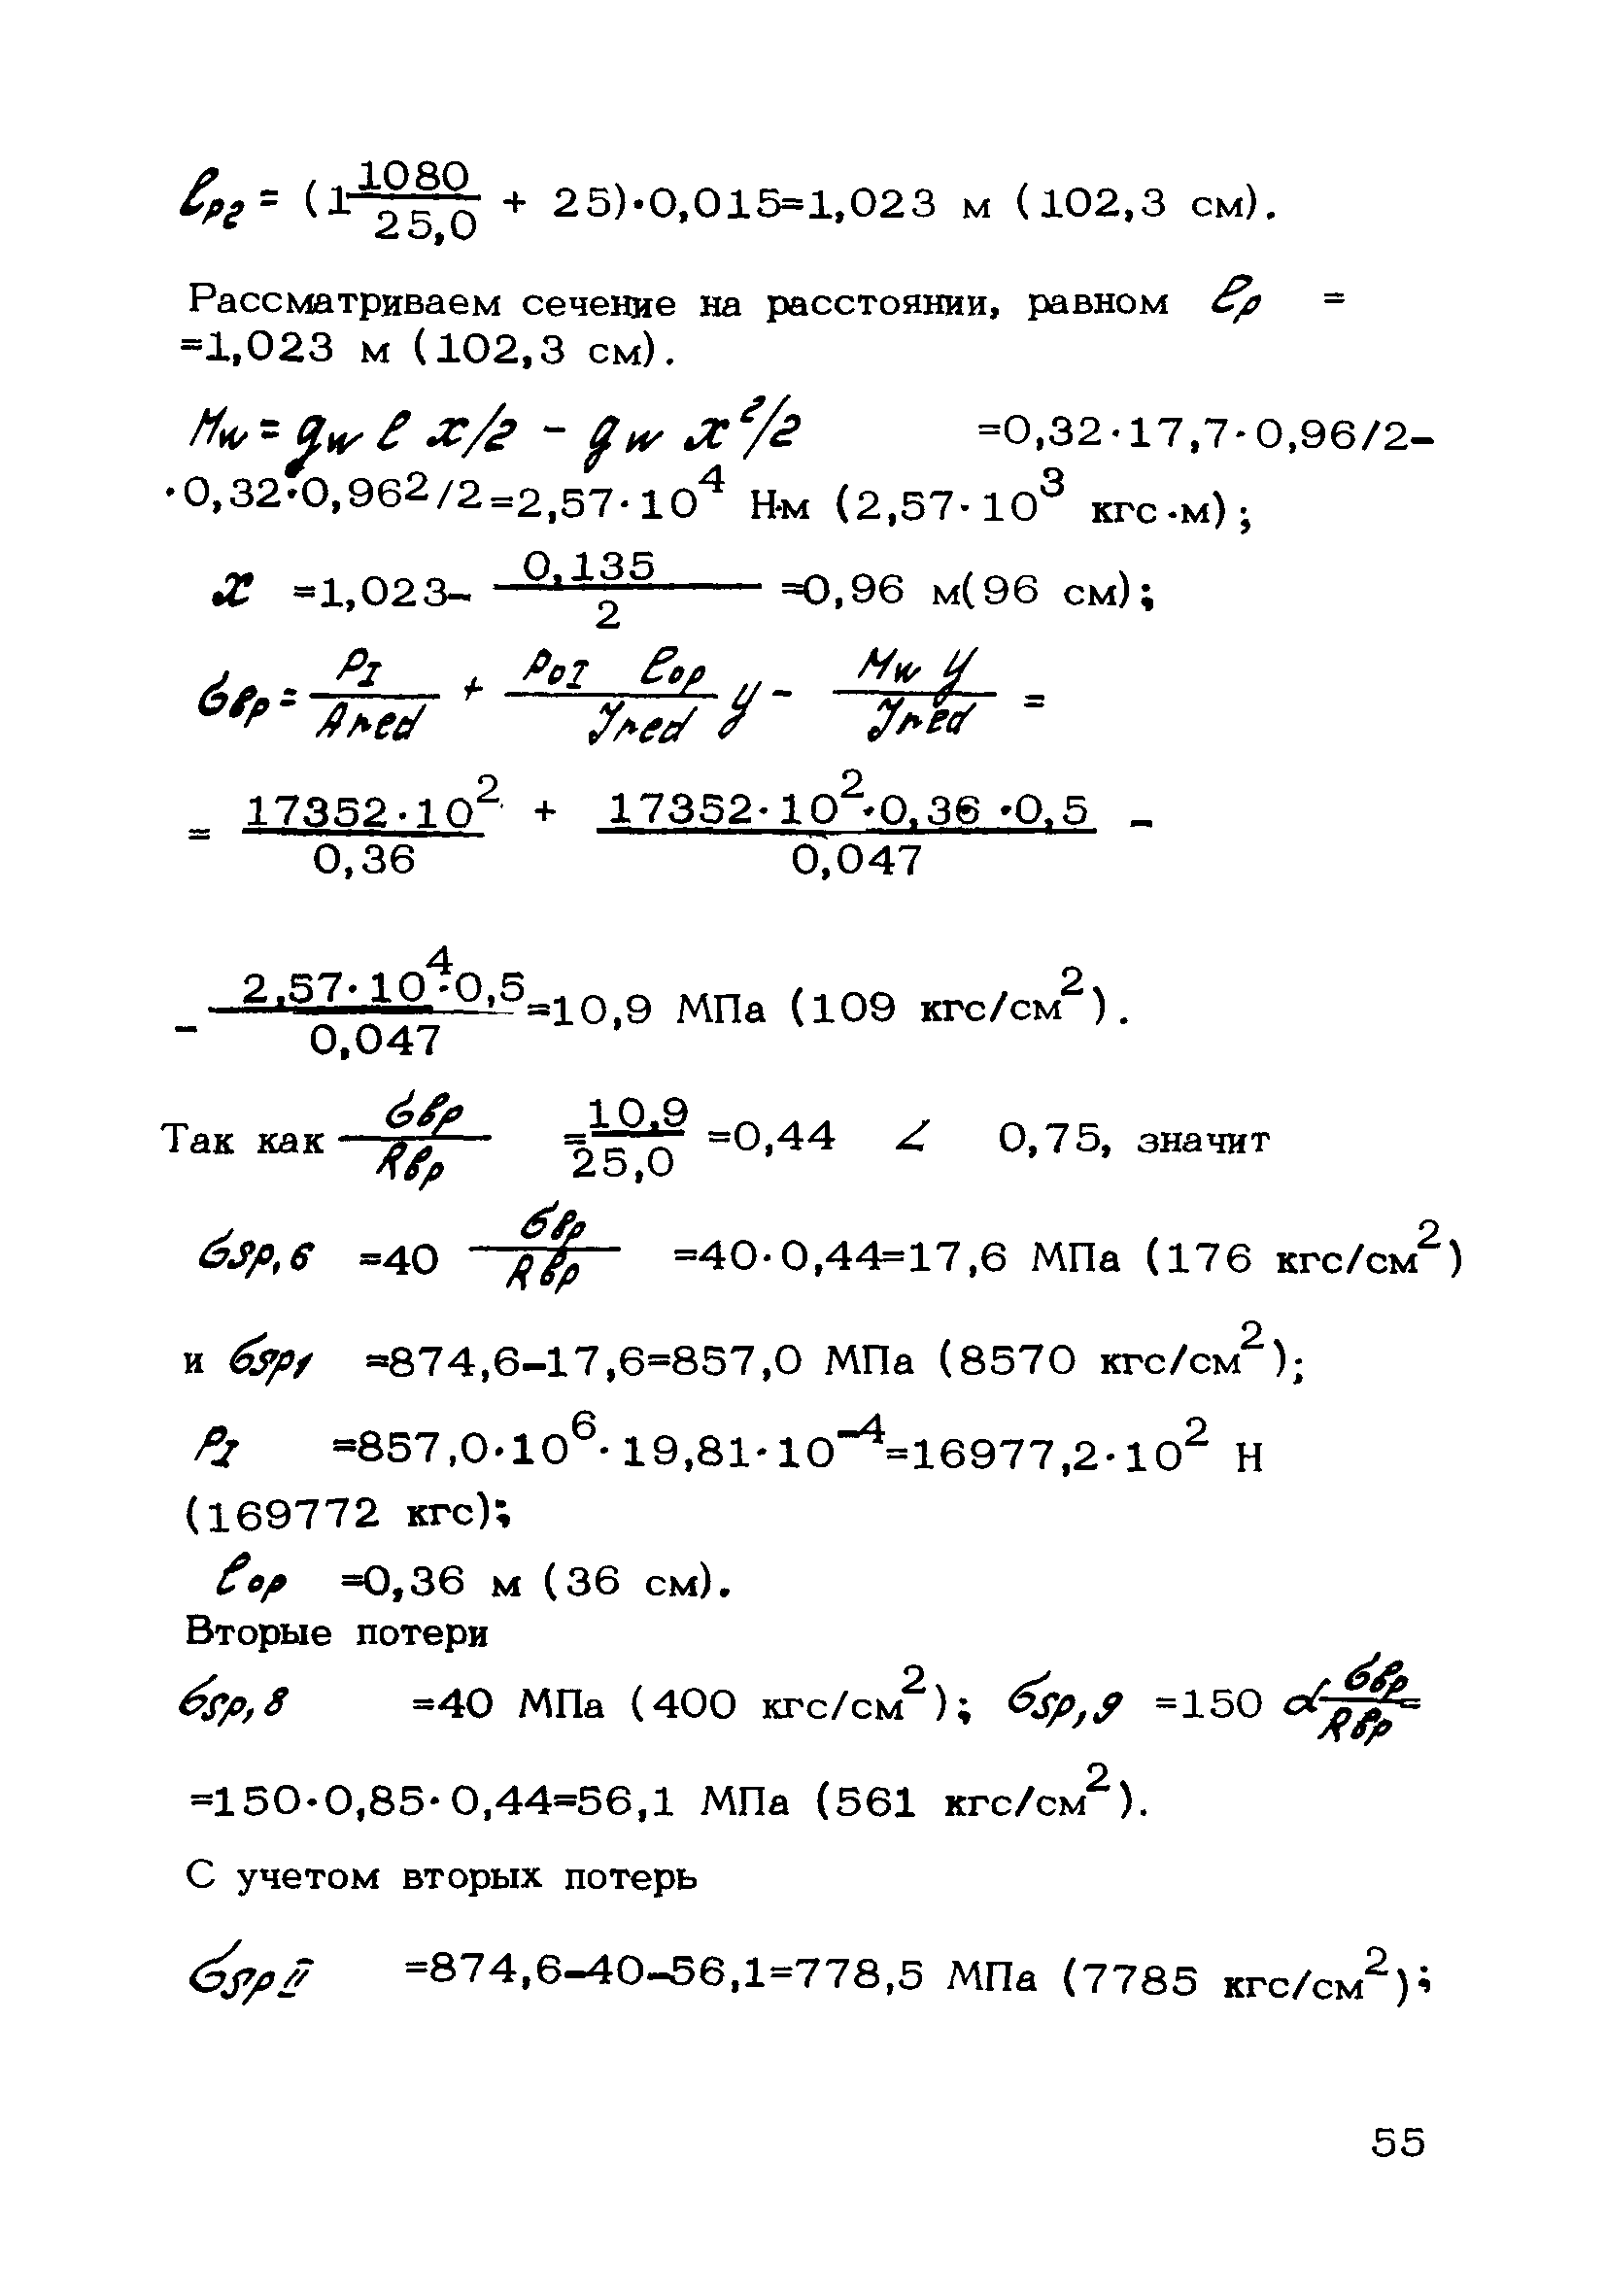 ℓp2 = (1 1080/25,0 + 25)·0,015=1,023 м (102,3 см).
Рассматриваем сечение на расстоянии, равном ℓp =
=1,023 м (102,3 см).
Mw = qw ℓ x/2 - qw x²/2 =0,32·17,7·0,96/2-
·0,32·0,96²/2=2,57·10⁴ Н·м (2,57·10³ кгс·м);
x =1,023- 0,135/2 =0,96 м(96 см);
σbp = PI/Ared + PoI ℓop/Jred y - Mw y/Jred =
= 17352·10²/0,36 + 17352·10²·0,36·0,5/0,047 -
- 2,57·10⁴·0,5/0,047 =10,9 МПа (109 кгс/см²).
Так как σbp/Rbp = 10,9/25,0 =0,44 < 0,75, значит
σsp,6 =40 σbp/Rbp =40·0,44=17,6 МПа (176 кгс/см²)
и σsp1 =874,6-17,6=857,0 МПа (8570 кгс/см²);
PI =857,0·10⁶·19,81·10⁻⁴=16977,2·10² Н
(169772 кгс);
ℓop =0,36 м (36 см).
Вторые потери
σsp,8 =40 МПа (400 кгс/см²); σsp,9 =150 α σbp/Rbp =
=150·0,85·0,44=56,1 МПа (561 кгс/см²).
С учетом вторых потерь
σspII =874,6-40-56,1=778,5 МПа (7785 кгс/см²);
55